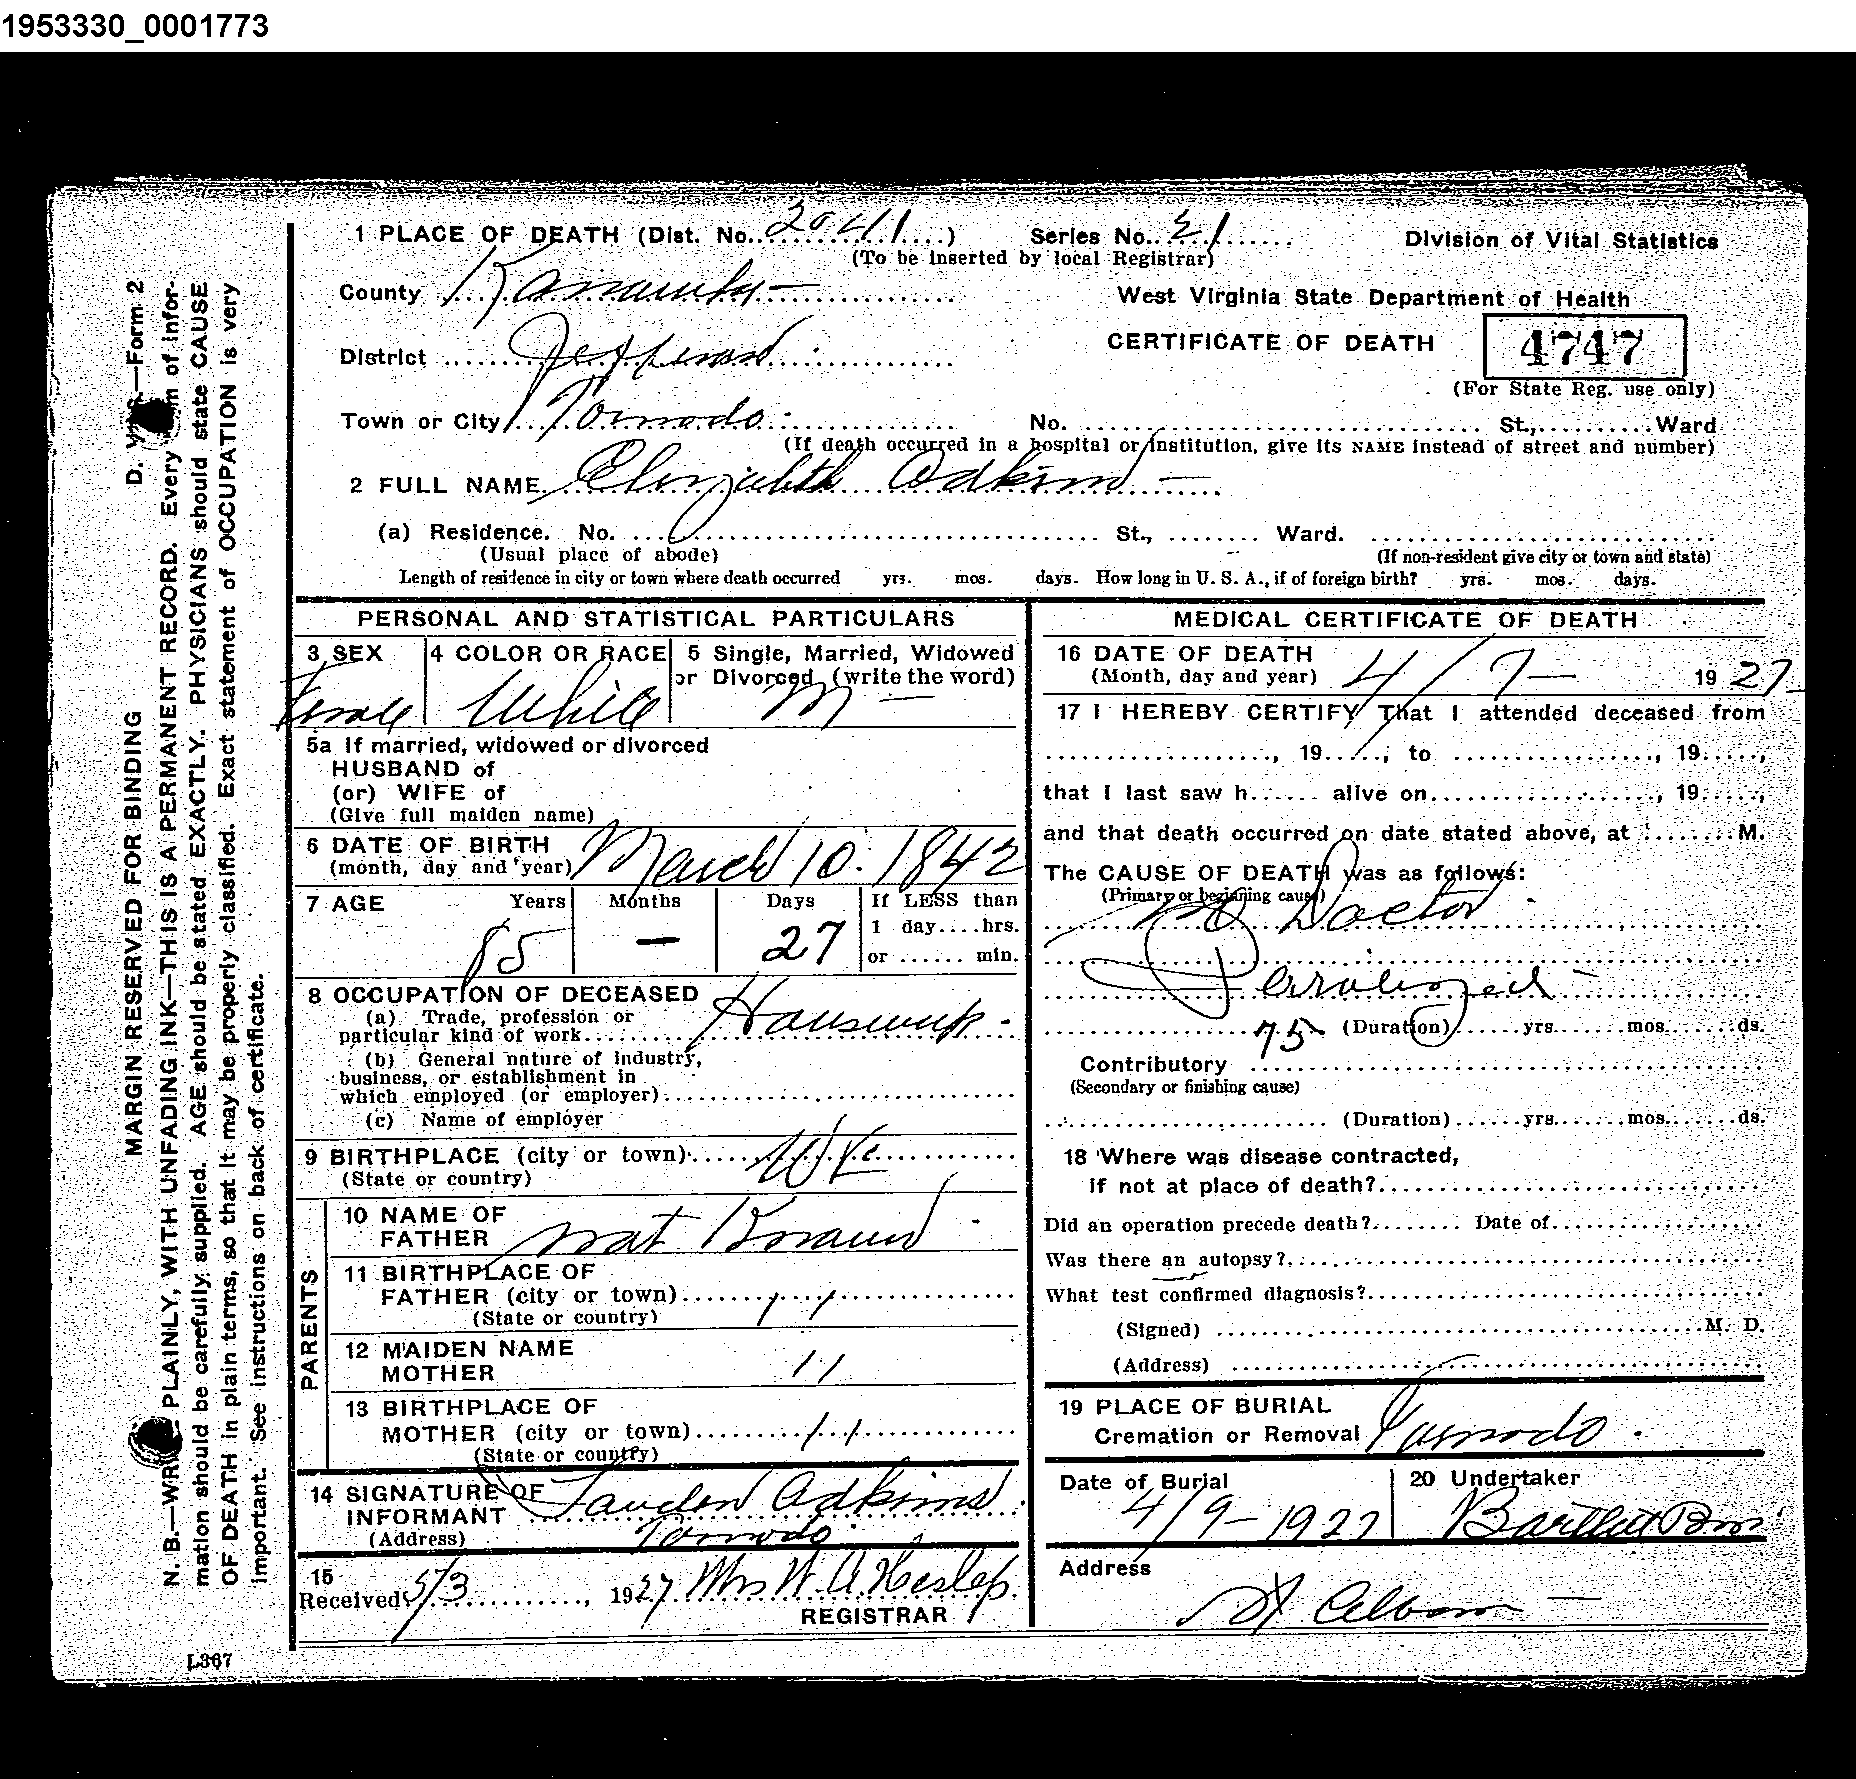 1953330_0001773
1 PLACE OF DEATH (Dist. No. 2041) Series No. 21 Division of Vital Statistics
(To be inserted by local Registrar)
County Kanawha West Virginia State Department of Health
District Jefferson CERTIFICATE OF DEATH 4747
(For State Reg. use only)
Town or City Tornado No. St., Ward
(If death occurred in a hospital or institution, give its NAME instead of street and number)
2 FULL NAME Elizabeth Adkins
(a) Residence. No. St., Ward.
(Usual place of abode) (If non-resident give city or town and state)
Length of residence in city or town where death occurred yrs. mos. days. How long in U. S. A., if of foreign birth? yrs. mos. days.
PERSONAL AND STATISTICAL PARTICULARS
3 SEX 4 COLOR OR RACE 5 Single, Married, Widowed
or Divorced (write the word)
Female White M
5a If married, widowed or divorced
HUSBAND of
(or) WIFE of
(Give full maiden name)
6 DATE OF BIRTH
(month, day and year) March 10. 1842
7 AGE Years Months Days If LESS than
1 day....hrs.
85 — 27 or ...... min.
8 OCCUPATION OF DECEASED
(a) Trade, profession or
particular kind of work Housewife
(b) General nature of industry,
business, or establishment in
which employed (or employer)
(c) Name of employer
9 BIRTHPLACE (city or town)
(State or country)
PARENTS
10 NAME OF
FATHER Nat
11 BIRTHPLACE OF
FATHER (city or town) 11
(State or country)
12 MAIDEN NAME
MOTHER 11
13 BIRTHPLACE OF
MOTHER (city or town) 11
(State or country)
14 SIGNATURE OF
INFORMANT Adkins
(Address) Tornado
15
Received 5/3, 1927 Mrs W. A. Heslep.
REGISTRAR
MEDICAL CERTIFICATE OF DEATH
16 DATE OF DEATH
(Month, day and year) 4/7- 1927
17 I HEREBY CERTIFY That I attended deceased from
, 19.....; to , 19.....,
that I last saw h...... alive on, 19.....,
and that death occurred on date stated above, at M.
The CAUSE OF DEATH was as follows:
(Primary or beginning cause)
No Doctor
Paralized
75 (Duration) yrs. mos. ds.
Contributory
(Secondary or finishing cause)
(Duration) yrs. mos. ds.
18 Where was disease contracted,
if not at place of death?
Did an operation precede death? Date of
Was there an autopsy?
What test confirmed diagnosis?
(Signed) M. D.
(Address)
19 PLACE OF BURIAL
Cremation or Removal Tornado
Date of Burial 20 Undertaker
4/9-1927 Bartlett Bros
Address
St Albans
MARGIN RESERVED FOR BINDING
N. B.—WRITE PLAINLY, WITH UNFADING INK—THIS IS A PERMANENT RECORD. Every item of infor-
mation should be carefully supplied. AGE should be stated EXACTLY. PHYSICIANS should state CAUSE
OF DEATH in plain terms, so that it may be properly classified. Exact statement of OCCUPATION is very
important. See instructions on back of certificate.
—Form 2
L367